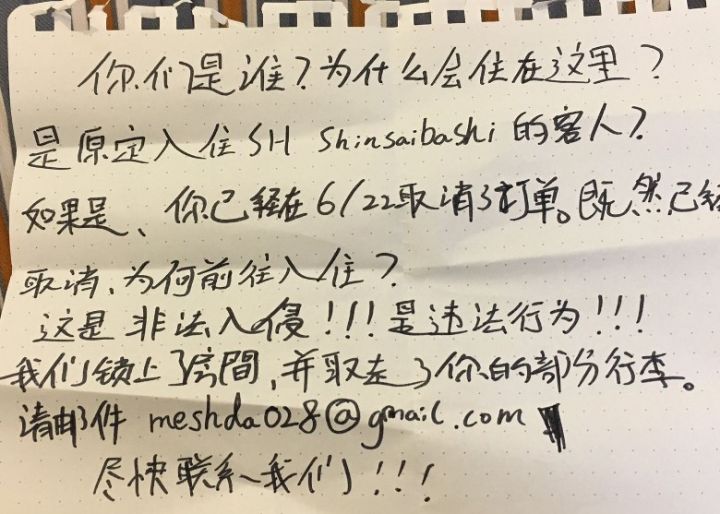 你们是谁？为什么会住在这里？
是原定入住SH Shinsaibashi的客人？
如果是、你已经在6/22取消了订单。既然已经
取消、为何前往入住？
这是 非法入侵!!!是违法行为!!!
我们锁上了房間,并取走了你的部分行李。
请邮件 meshda028@gmail.com
尽快联系我们!!!